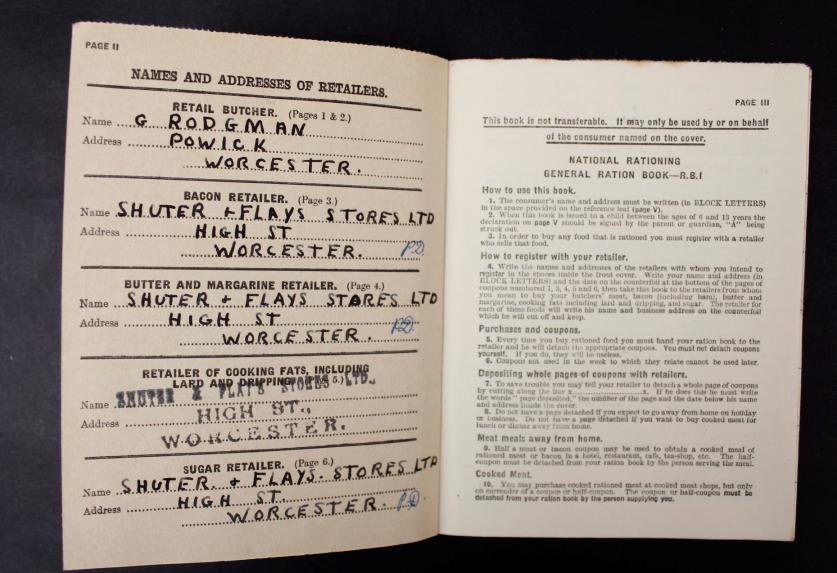 PAGE II
NAMES AND ADDRESSES OF RETAILERS.
RETAIL BUTCHER. (Pages 1 & 2.)
Name G RODGMAN
Address POWICK
WORCESTER.
BACON RETAILER. (Page 3.)
Name SHUTER + FLAYS STORES LTD
Address HIGH ST
WORCESTER. P.D.
BUTTER AND MARGARINE RETAILER. (Page 4.)
Name SHUTER + FLAYS STORES LTD
Address HIGH ST
WORCESTER. P.D.
RETAILER OF COOKING FATS, INCLUDING
LARD AND DRIPPING. 5.)
Name SHUTER & FLAYS STORES LTD.,
Address HIGH ST.,
WORCESTER.
SUGAR RETAILER. (Page 6.)
Name SHUTER + FLAYS STORES LTD
Address HIGH ST.
WORCESTER. P.D.
PAGE III
This book is not transferable. It may only be used by or on behalf
of the consumer named on the cover.
NATIONAL RATIONING
GENERAL RATION BOOK—R.B.1
How to use this book.
1. The consumer's name and address must be written (in BLOCK LETTERS)
in the space provided on the reference leaf (page V).
2. When this book is issued to a child between the ages of 6 and 13 years the
declaration on page V should be signed by the parent or guardian, "A" being
struck out.
3. In order to buy any food that is rationed you must register with a retailer
who sells that food.
How to register with your retailer.
4. Write the names and addresses of the retailers with whom you intend to
register in the spaces inside the front cover. Write your name and address (in
BLOCK LETTERS) and the date on the counterfoil at the bottom of the pages of
coupons numbered 1, 3, 4, 5 and 6, then take this book to the retailers from whom
you mean to buy your butchers' meat, bacon (including ham), butter and
margarine, cooking fats including lard and dripping, and sugar. The retailer for
each of these foods will write his name and business address on the counterfoil
which he will cut off and keep.
Purchases and coupons.
5. Every time you buy rationed food you must hand your ration book to the
retailer and he will detach the appropriate coupons. You must not detach coupons
yourself. If you do, they will be useless.
6. Coupons not used in the week to which they relate cannot be used later.
Depositing whole pages of coupons with retailers.
7. To save trouble you may tell your retailer to detach a whole page of coupons
by cutting along the line x..............................x. If he does this he must write
the words "page deposited," the number of the page and the date below his name
and address inside the cover.
8. Do not have a page detached if you expect to go away from home on holiday
or business. Do not have a page detached if you want to buy cooked meat for
lunch or dinner away from home.
Meat meals away from home.
9. Half a meat or bacon coupon may be used to obtain a cooked meal of
rationed meat or bacon in a hotel, restaurant, cafe, tea-shop, etc. The half-
coupon must be detached from your ration book by the person serving the meal.
Cooked Meat.
10. You may purchase cooked rationed meat at cooked meat shops, but only
on surrender of a coupon or half-coupon. The coupon or half-coupon must be
detached from your ration book by the person supplying you.